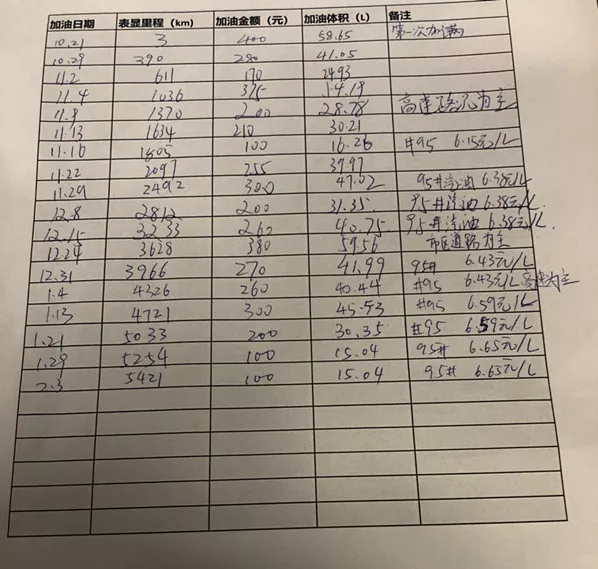 加油日期 表显里程（km） 加油金额（元） 加油体积（L） 备注
10.21 3 400 58.65 第一次加满
10.29 390 280 41.05
11.2 611 170 24.93
11.4 1036 375
11.9 1370 200 28.78 高速路况为主
11.13 1634 210 30.21
11.16 1805 100 16.26 #95 6.15元/L
11.22 2097 255 37.97
11.29 2492 300 47.02 95#汽油 6.38元/L
12.8 2812 200 31.35 95#汽油 6.38元/L
12.15 3233 260 40.75 95#汽油 6.38元/L
12.24 3628 380 59.56 市区道路为主
12.31 3966 270 41.99 95# 6.43元/L
1.4 4326 260 40.44 #95 6.43元/L 高速为主
1.13 4721 300 45.53 #95 6.59元/L
1.21 5033 200 30.35 #95 6.59元/L
1.29 5254 100 15.04 95# 6.65元/L
2.3 5421 100 15.04 95# 6.65元/L